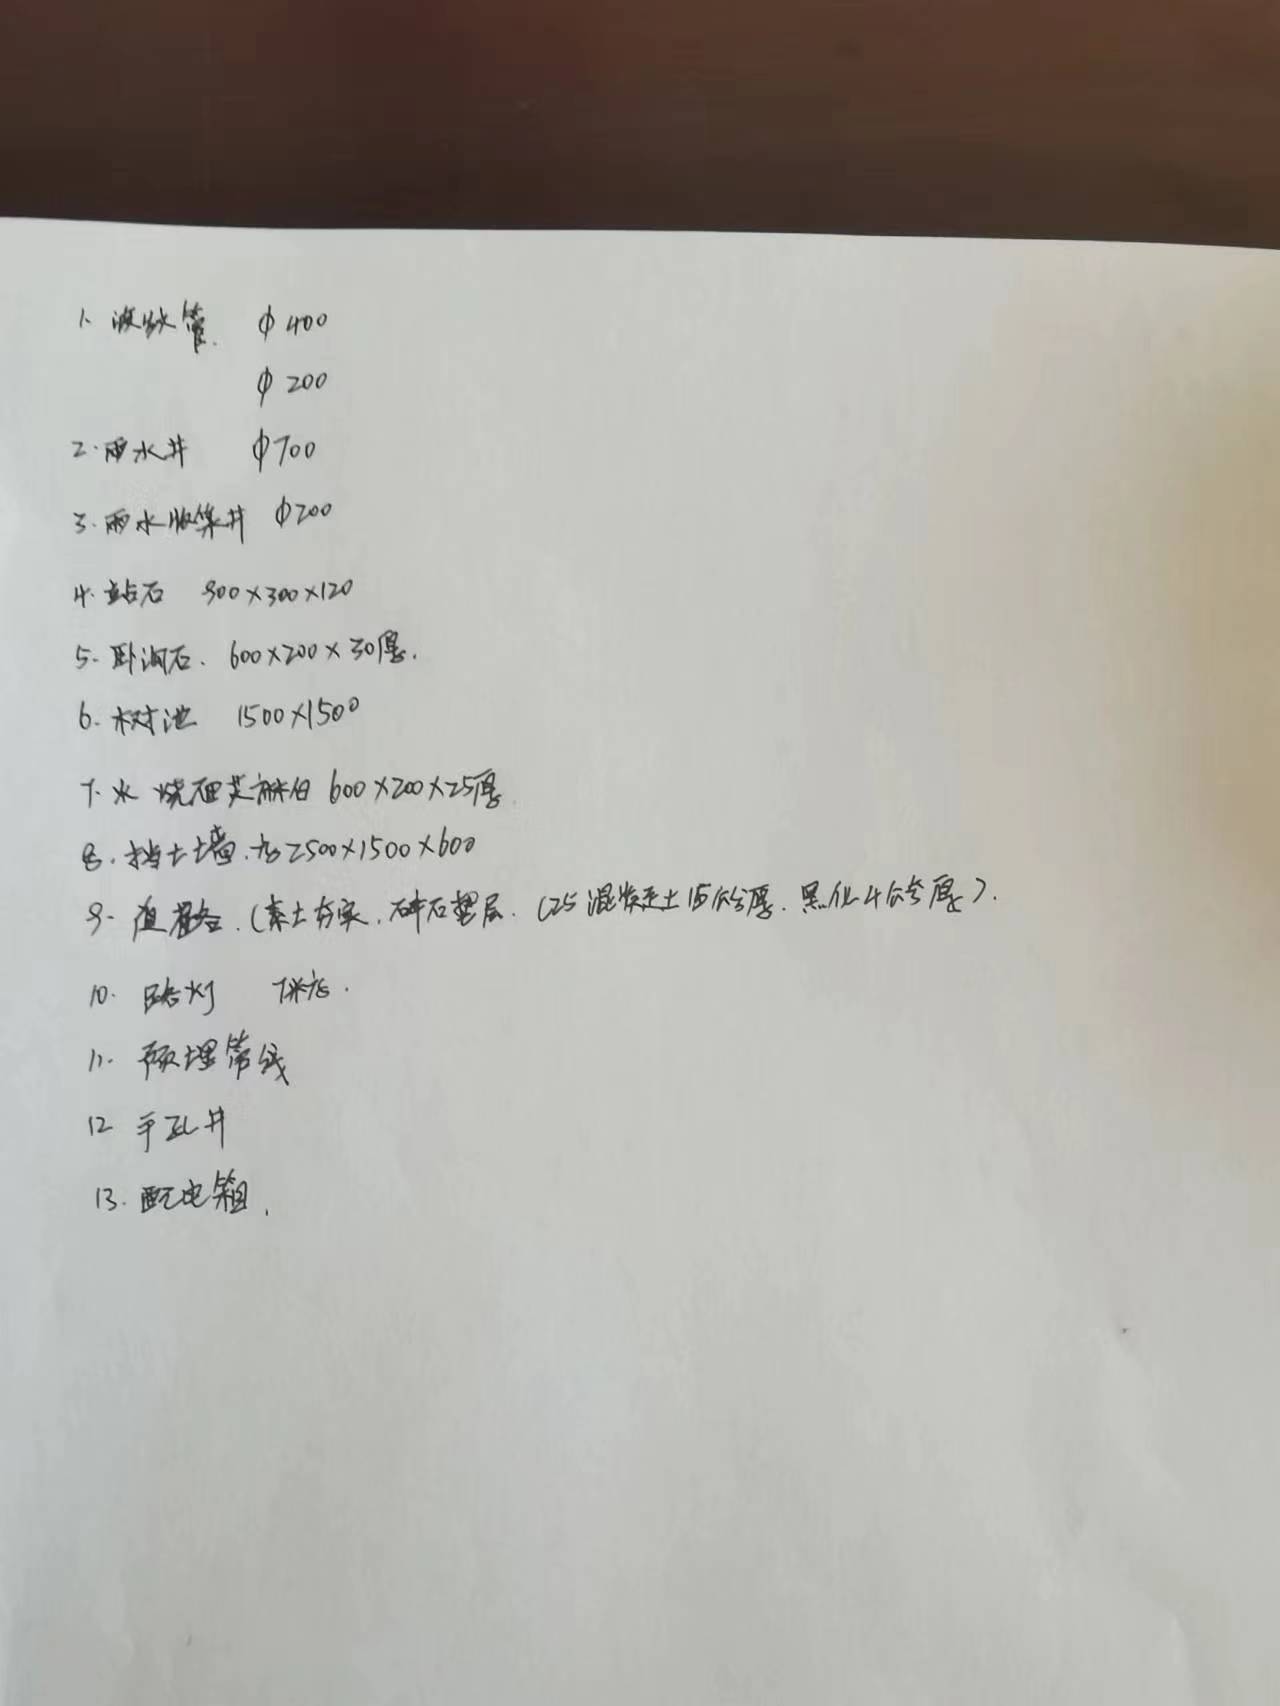 1. 波纹管. φ400
φ200
2. 雨水井 φ700
3. 雨水收集井 φ200
4. 站石 900×300×120
5. 卧沟石. 600×200×30厚.
6. 树池 1500×1500
7. 火烧面芝麻白 600×200×25厚
8. 挡土墙. 2500×1500×600
9. 道路. (素土夯实. 碎石垫层. C25混凝土15公分厚. 黑化4公分厚).
10. 路灯 7米.
11. 预埋管线
12 手孔井
13. 配电箱.